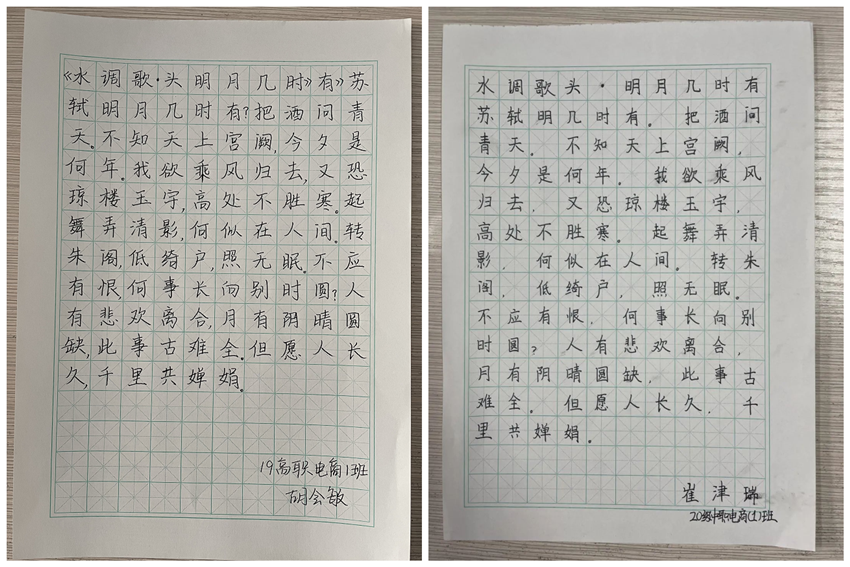 《水调歌·头明月几时》有》苏
轼明月几时有?把酒问青
天。不知天上宫阙,今夕是
何年。我欲乘风归去,又恐
琼楼玉宇,高处不胜寒。起
舞弄清影,何似在人间。转
朱阁,低绮户,照无眠。不应
有恨,何事长向别时圆?人
有悲欢离合,月有阴晴圆
缺,此事古难全。但愿人长
久,千里共婵娟。
19高职电商1班
胡会敏
水调歌头·明月几时有
苏轼明几时有。把酒问
青天。不知天上宫阙,
今夕是何年。我欲乘风
归去,又恐琼楼玉宇,
高处不胜寒。起舞弄清
影,何似在人间。转朱
阁,低绮户,照无眠。
不应有恨,何事长向别
时圆?人有悲欢离合,
月有阴晴圆缺,此事古
难全。但愿人长久,千
里共婵娟。
崔津瑞
20级中职电商(1)班